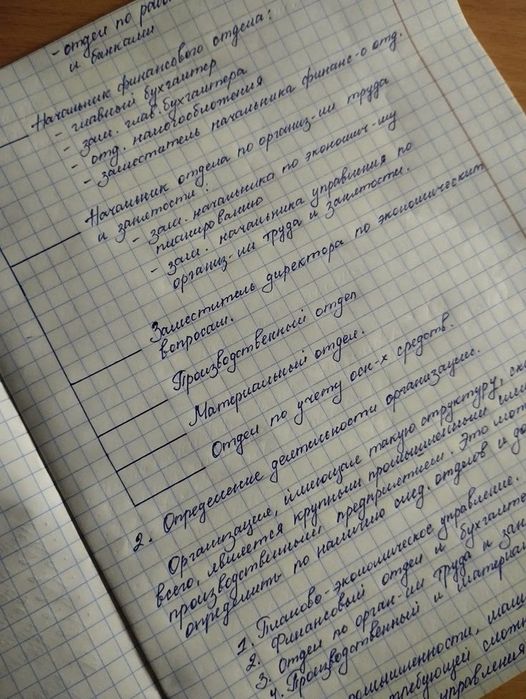 - отдел по раб
и банками
Начальник финансового отдела:
- главный бухгалтер
- зам. глав. бухгалтера
- отд. налогообложения
- заместитель начальника финанс-о отд.
Начальник отдела по организ-ии труда
и занятости:
- зам. начальника по экономич-му
планированию
- зам. начальника управления по
организ-ии труда и занятости.
Заместитель директора по экономическим
вопросам.
Производственный отдел
Материальный отдел.
Отдел по учету осн-х средств.
2. Определение деятельности организации.
Организация, имеющая такую структуру, ско
всего, является крупным промышленным или
производственным предприятием. Это мож
определить по наличию след. отделов и до
1. Планово-экономическое управление.
2. Финансовый отдел и бухгалте
3. Отдел по орган-ии труда и зан
4. Производственный и материал
ромышленности, маш
требующей
управления